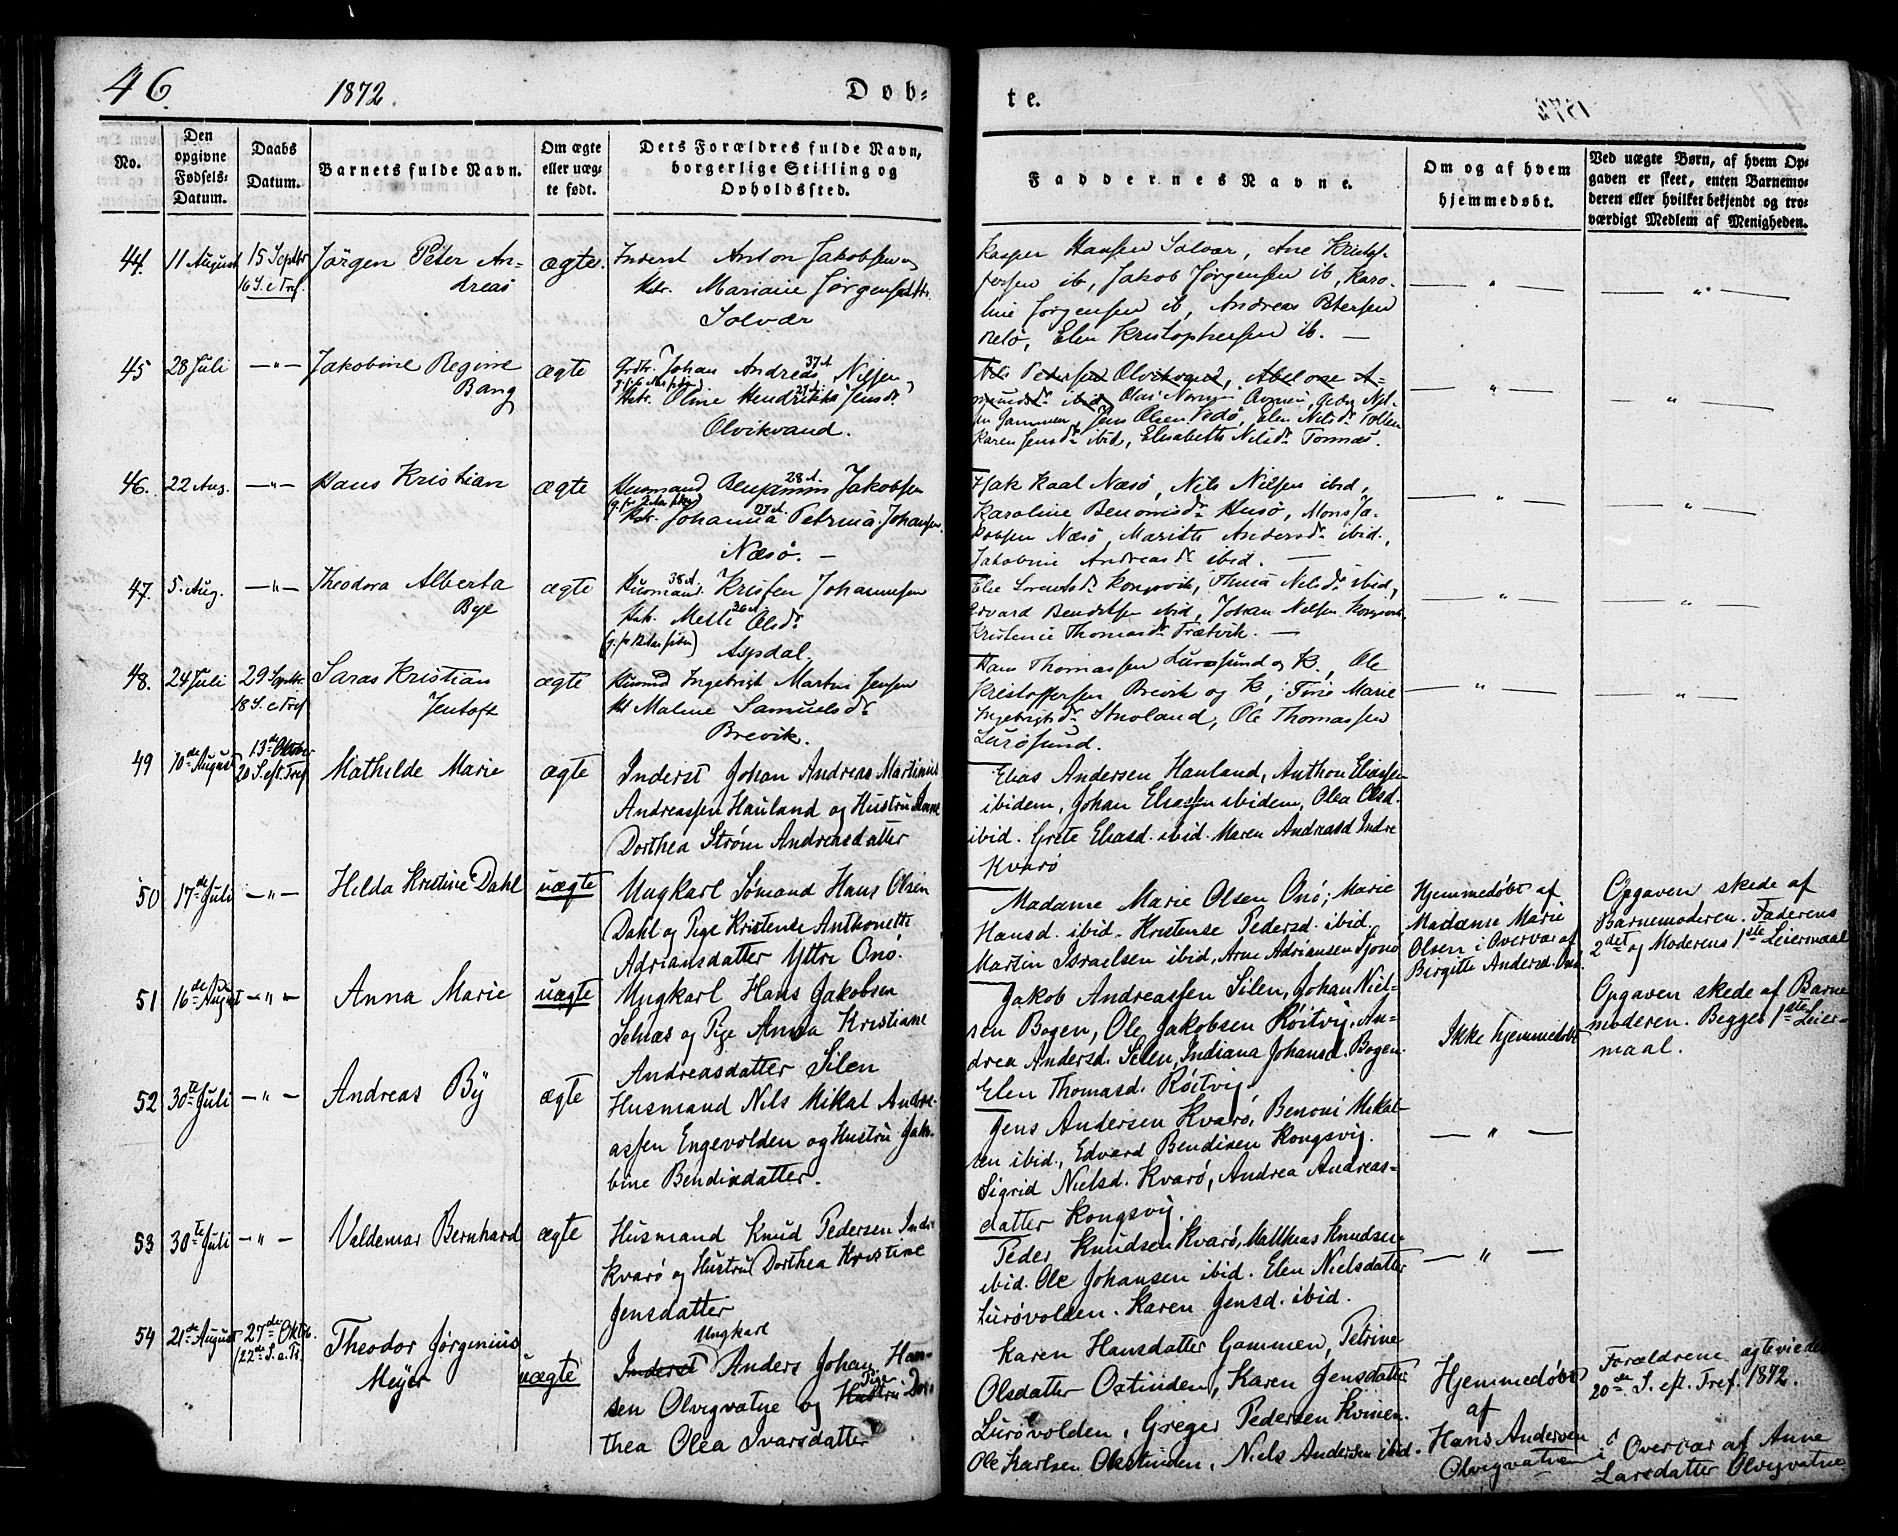 46
1872.
Døb-
te.
No.
Den opgivne Fødsels-Datum.
Daabs Datum.
Barnets fulde Navn.
Om ægte eller uæg-te født.
Dets Forældres fulde Navn, borgerlige Stilling og Opholdssted.
Faddernes Navne.
Om og af hvem hjemmedøbt.
Ved uægte Børn, af hvem Op-
gaven er skeet, enten Barnemo-
deren eller hvilket bekjendt og tro-
værdigt Medlem af Menigheden.
44.
11 August
15 Septbr
16 S. e Tref.
Jörgen Peter An-
dreas
ægte.
Inderst Anton Jakobsen og
Hstr. Mariane Jørgensdttr.
Solvær
Kasper Hansen Solvær, Ane Kristof-
fersen ib, Jakob Jørgensen ib, Karo-
line Jørgensen ib, Andreas Petersen
Selö, Elen Kristophersen ib. —
45
28 Juli
—"—
Jakobine Regine
Bang
ægte
Johan Andreas 37 A Nilsen
Hstr. Oline Hendrikka 27 A. Jensdr
Olvikvand.
Nils Petersen Olvikvand, Abelone A-
mundsdr ibid, Jens Olsen Selö, Elen Nilsdr
Karen Jensdr ibid, Elisabeth Nilsdr Tonnes.
46.
22 Aug.
—"—
Hans Kristian
ægte
Husmand Benjamin 28 A. Jakobsen
Hstr. Johanna 27 A. Petrina Johansen.
Næsø. —
Isak Kaal Næsø, Nils Nilsen ibid,
Karoline Benonisdr Husø, Mons Ja-
kobsen Næsö, Marith Andersdr ibid,
Jakobine Andreasdr ibid. —
47.
5. Aug.
—"—
Theodora Alberta
Bye
ægte
Husmand 38 A. Kristen Johannesen
Hstr. Mette 36 A. Olsdr
Aspdal.
Elie Lorentsdr Kongsvik, Thina Nilsdr ibid,
Edvard Bendiksen ibid, Johan Nilsen Kongsvik,
Kristence Thomasdr Trætvik. —
48.
24 Juli
29 Septbr.
18 S. e Tref
Saras Kristian
Jentoft
ægte
Husmd Ingebrigt Martin Jensen
Hst Maline Samuelsdr
Brevik.
Hans Thomassen Lurøsund og K., Ole
Kristoffersen Brevik og K, Tine Marie
Ingebrigtsdr Stuoland, Ole Thomassen
Lurøsund.
49
10de August
13de Oktober
20 S. eft. Tref
Mathilde Marie
ægte
Inderst Johan Andreas Martinus
Andreassen Hauland og Hustru Anne
Dorthea Strøm Andreasdatter
Elias Andersen Hauland, Anthon Eliassen
ibidem, Johan Eliassen ibidem, Olea Olsd.
ibid. Grete Eliasd. ibid. Maren Andreasd Indre
Kvarø
50
17de Juli
—"—
Hilda Kristine Dahl
uægte
Ungkarl Sømand Hans Olsen
Dahl og Pige Kristense Anthonette
Adriansdatter Yttre Onø.
Madame Marie Olsen Onø, Marie
Hansd. ibid. Kristense Pedersd. ibid.
Martin Israelsen ibid, Arne Adriansen Sjonø
Hjemmedøbt af
Madame Marie
Olsen i Overvær af
Birgitte Andersd. Onø.
Opgaven skede af
Barnemoderen. Faderens
2det og Moderens 1ste Leiermaal
51
16de August
—"—
Anna Marie
uægte
Ungkarl Hans Jakobsen
Selnæs og Pige Anna Kristiane
Andreasdatter Silen
Jakob Andreassen Silen, Johan Niel-
sen Bogen, Ole Jakobsen Røitvig, An-
drea Andersd. Silen, Indiana Johansd. Bogen.
Elen Thomasd. Røitvig.
Ikke hjemmedøbt
Opgaven skede af Barne
moderen. Begges 1ste Leier-
maal.
52
30te Juli
—"—
Andreas Bÿ
ægte
Husmand Nils Mikal Andre-
assen Engevolden og Hustru Jako-
bine Bendixdatter.
Jens Andersen Kvarø, Benoni Mikal-
sen ibid., Edvard Bendixen Kongsvig.
Sigrid Nielsd. Kvarø, Andrea Andreas-
datter Kongsvig.
53
30te Juli
—"—
Valdemar Bernhard
ægte
Husmand Knud Pedersen Indre
Kvarø og Hustru Dorthea Kristine
Jensdatter
Peder Knudsen Kvarø, Matthias Knudsen
ibid. Ole Johansen ibid. Elen Nielsdatter
Lurøvolden. Karen Jensd. ibid.
54
21de August
27de Oktob.
(22de S. e. Tr.
Theodor Jørginius
Meyer
uægte
Ungkarl
Inderst Anders Johan Han-
sen Olvigvatne og Hustru Pige Doro-
thea Olea Ivarsdatter
Karen Hansdatter Gammen, Petrine
Olsdatter Oxtinden, Karen Jensdatter
Lurøvolden, Greger Pedersen Kvinen.
Ole Karlsen Oxtinden, Niels Andersen ibid.
Hjemmedøbt
af
Hans Andersen
Olvigvatnen
Forældrene ægteviede
20de S. eft. Tref. 1872.
i Overvær af Anne
Larsdatter Olvigvatne